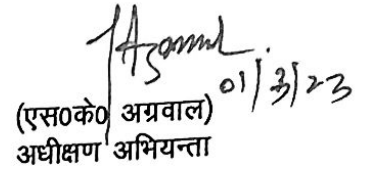 01/3/23
(एस0के0 अग्रवाल)
अधीक्षण अभियन्ता